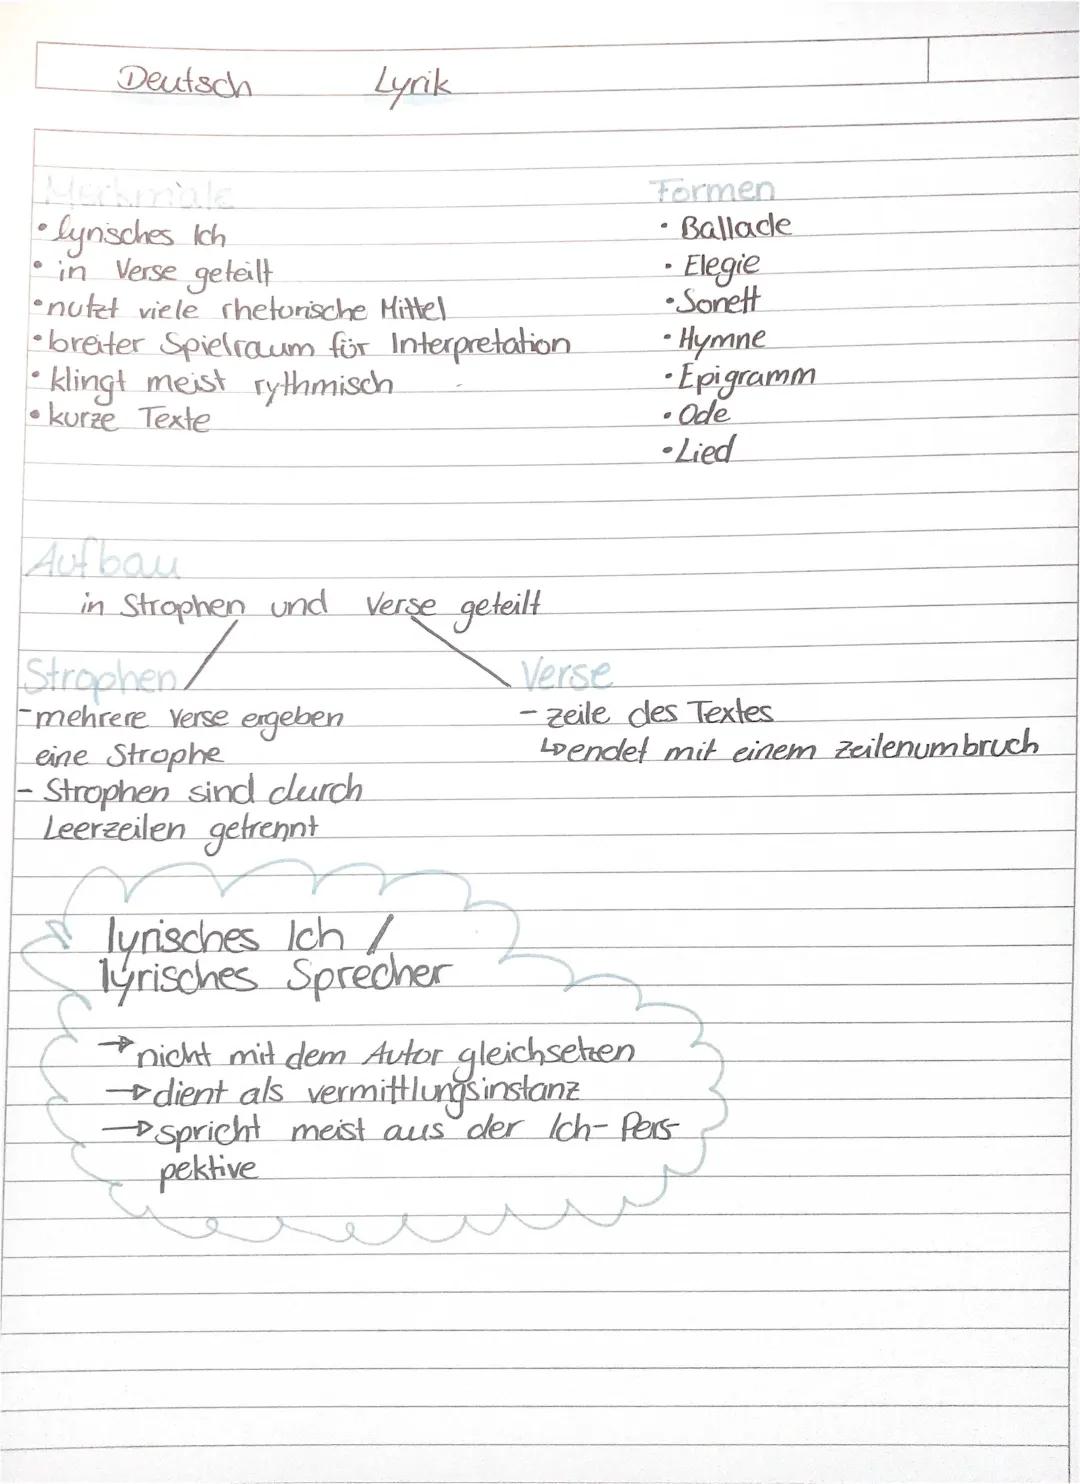 Deutsch Lyrik
Merkmale
• lyrisches Ich
• in Verse geteilt
• nutzt viele rhetorische Mittel
• breiter Spielraum für Interpretation
• klingt meist rythmisch
• kurze Texte
Formen
• Ballade
• Elegie
• Sonett
• Hymne
• Epigramm
• Ode
• Lied
Aufbau
in Strophen und Verse geteilt
Strophen
- mehrere Verse ergeben
eine Strophe
- Strophen sind durch
Leerzeilen getrennt
Verse
- zeile des Textes
↳ endet mit einem zeilenumbruch
lyrisches Ich /
lyrisches Sprecher
→ nicht mit dem Autor gleichsetzen
→ dient als vermittlungsinstanz
→ spricht meist aus der Ich-Pers-
pektive